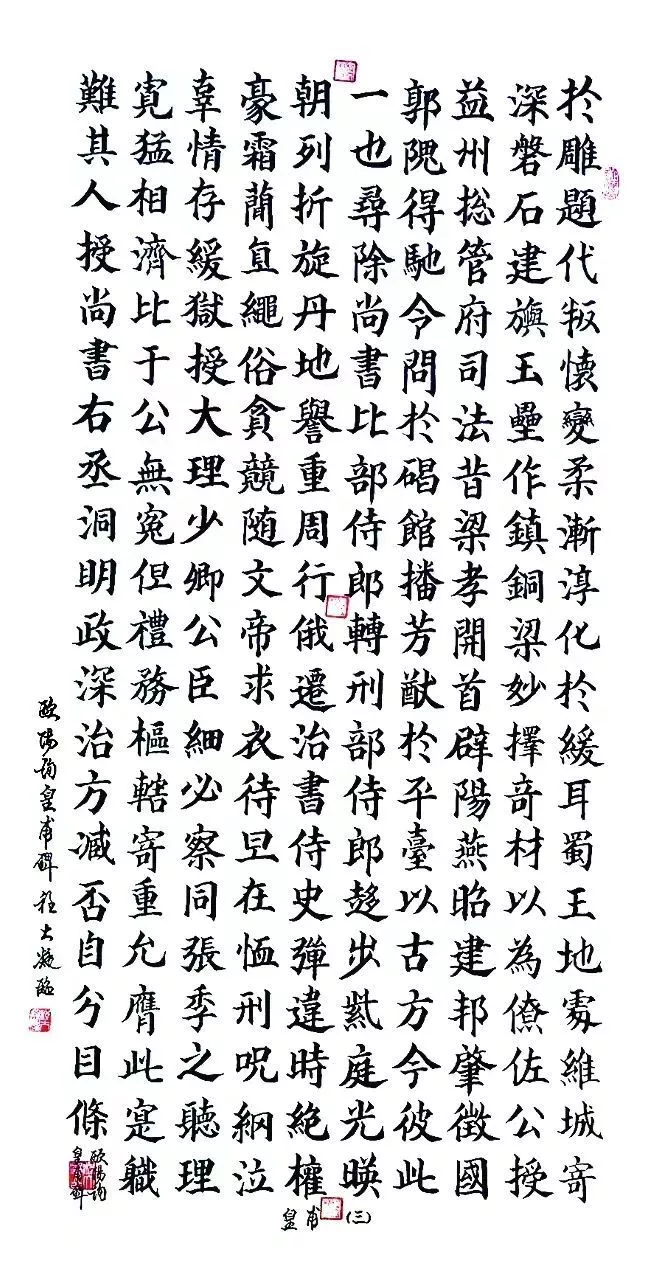 於雕題代叛懷變柔漸淳化於緩耳蜀王地處維城寄
深磐石建旟玉壘作鎮銅梁妙擇奇材以為僚佐公授
益州捴管府司法昔梁孝開首辟陽燕昭建邦肇徵國
郭隗得馳令問於碣館播芳猷於平臺以古方今彼此
一也尋除尚書比部侍郎轉刑部侍郎趍步紫庭光暎
朝列折旋丹地譽重周行俄遷治書侍史彈違時絕權
豪霜蕳直繩俗貪競随文帝求衣待旦在恤刑呪網泣
辜情存緩獄授大理少卿公臣細必察同張季之聽理
寬猛相濟比于公無冤但禮務樞轄寄重允膺此寔職
難其人授尚書右丞洞明政深治方臧否自分目條
歐陽詢皇甫碑程大凝臨
歐陽詢
皇甫碑
皇甫(三)